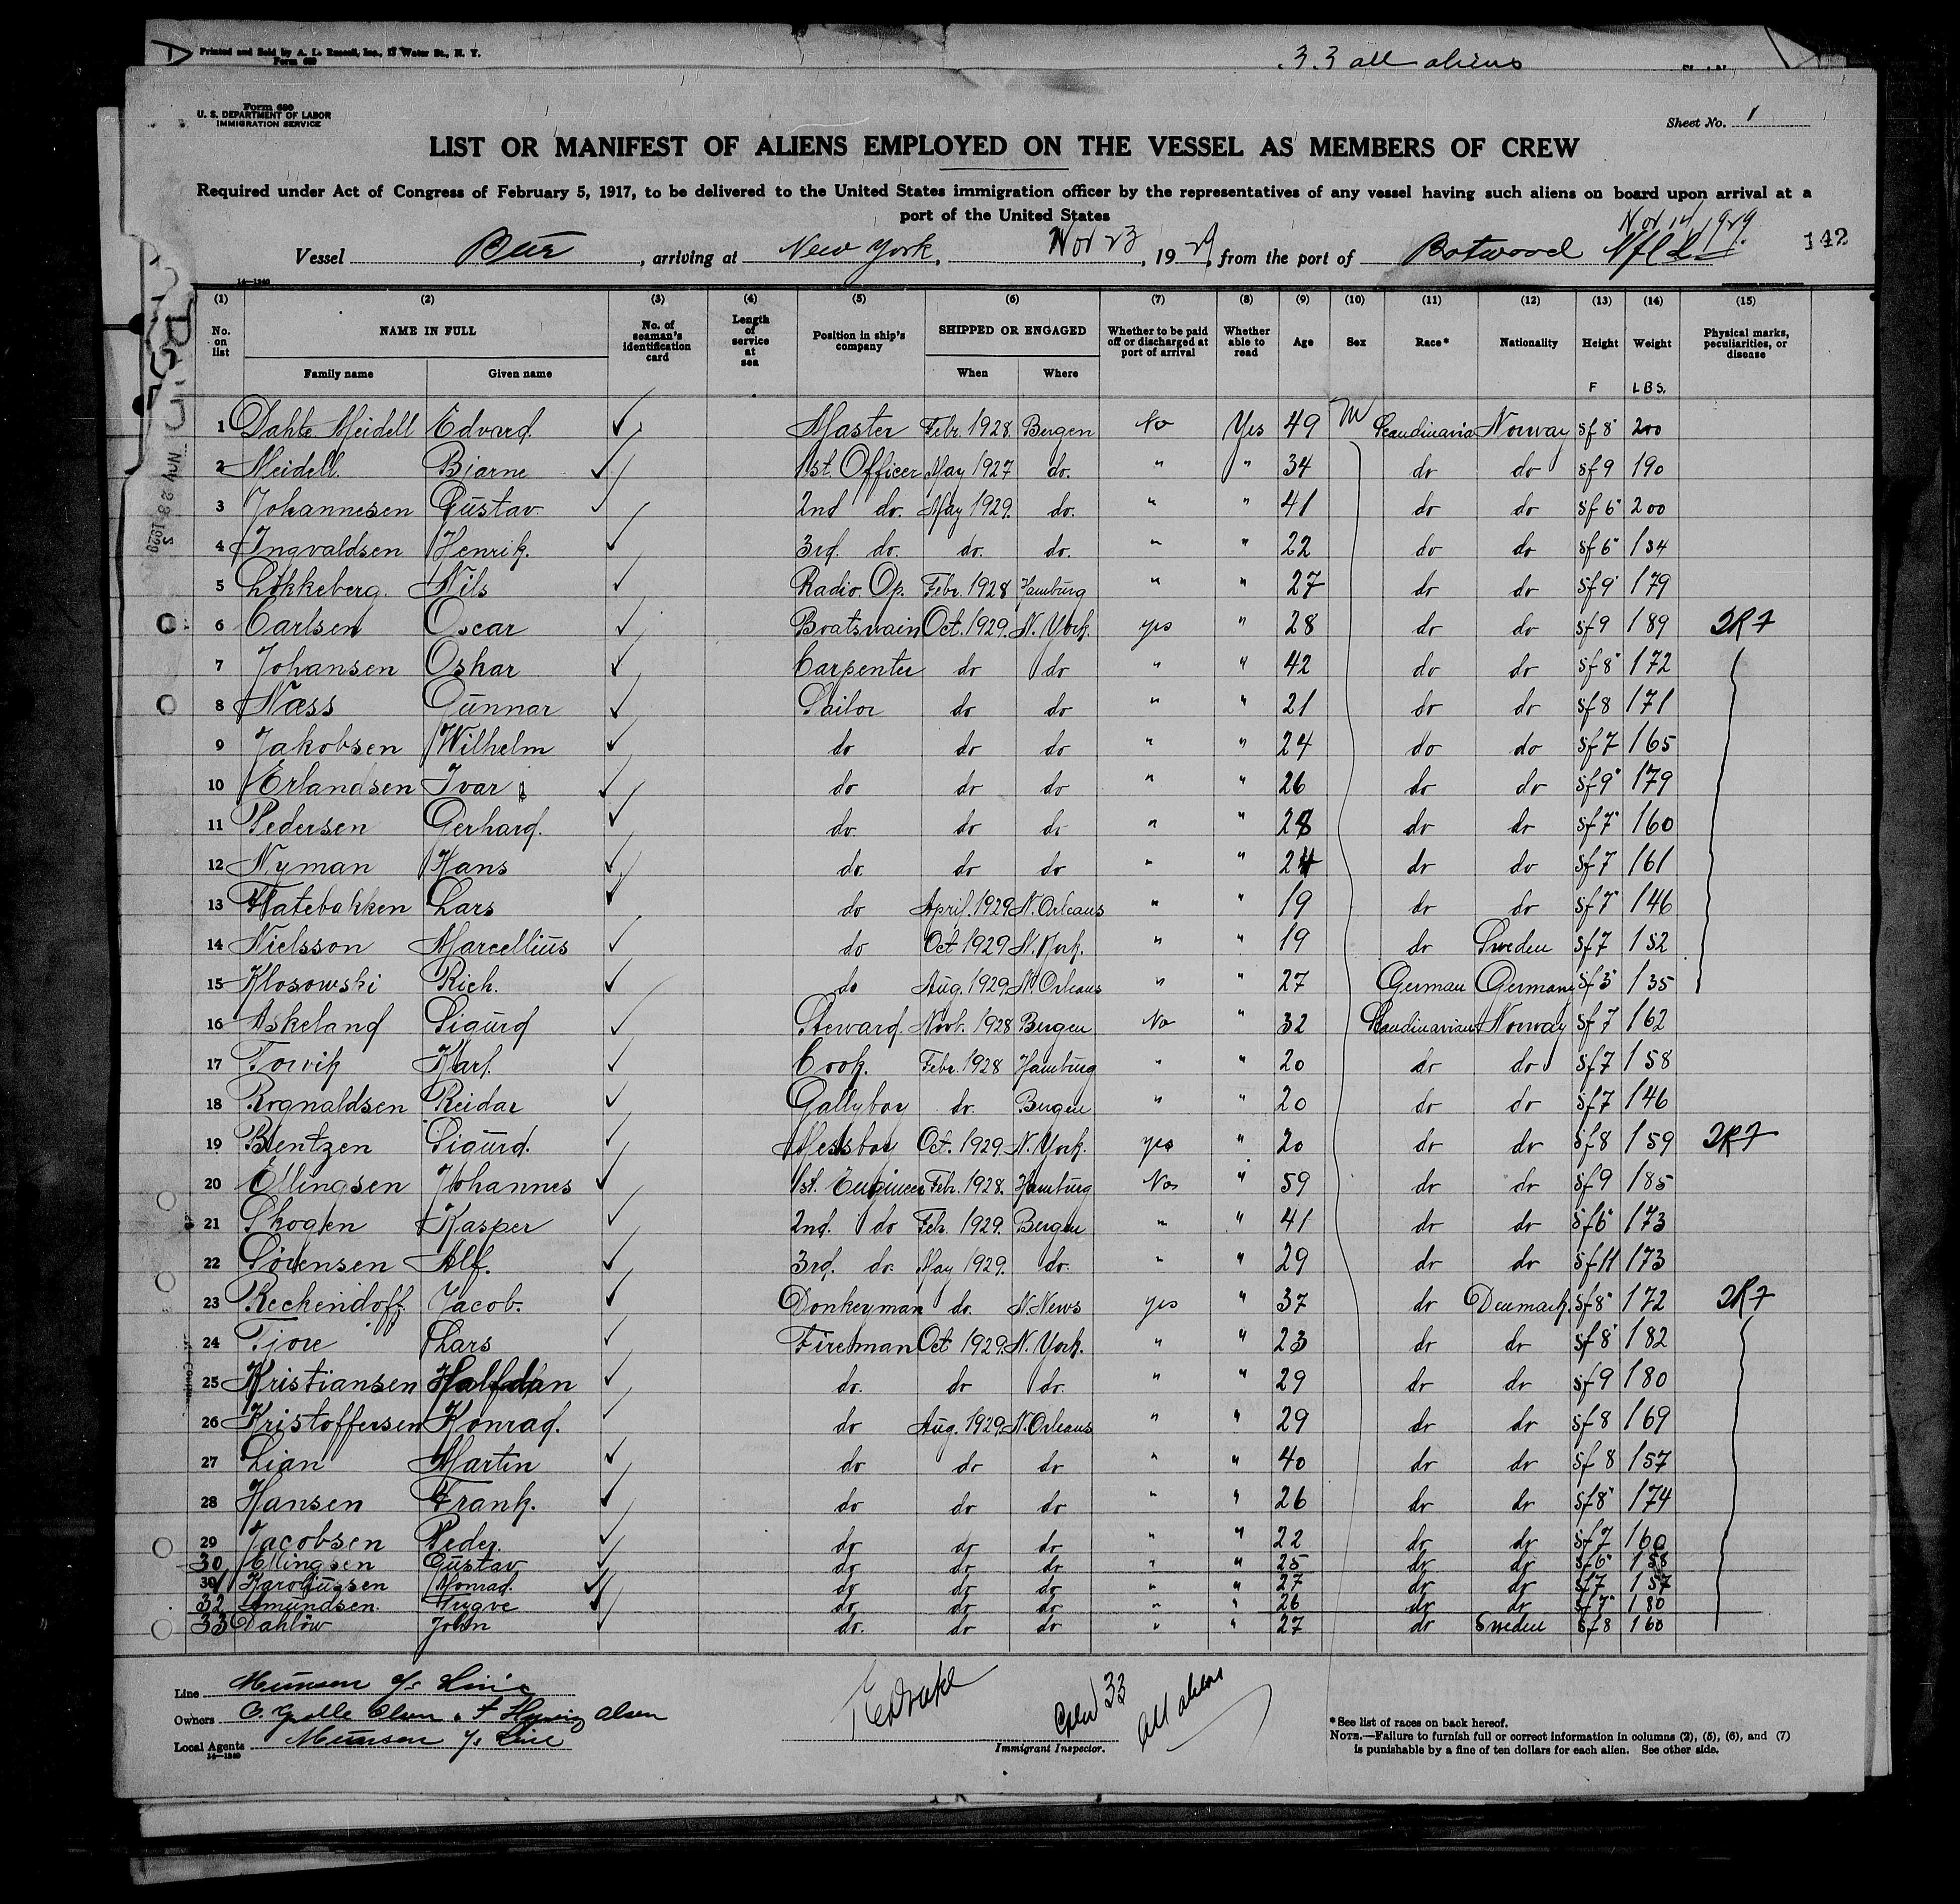 Printed and Sold by A. L. Russell, Inc., 17 Water St., N. Y.
Form 689
33 all aliens
Form 680
U. S. DEPARTMENT OF LABOR
IMMIGRATION SERVICE
Sheet No. 1
LIST OR MANIFEST OF ALIENS EMPLOYED ON THE VESSEL AS MEMBERS OF CREW
Required under Act of Congress of February 5, 1917, to be delivered to the United States immigration officer by the representatives of any vessel having such aliens on board upon arrival at a
port of the United States
Nov 14 1929.
Vessel Bur, arriving at New York, Nov 23, 1929, from the port of Botwood Nfld 142
14—1240
(1) (2) (3) (4) (5) (6) (7) (8) (9) (10) (11) (12) (13) (14) (15)
No. on list NAME IN FULL Family name Given name No. of seaman's identification card Length of service at sea Position in ship's company SHIPPED OR ENGAGED When Where Whether to be paid off or discharged at port of arrival Whether able to read Age Sex Race* Nationality Height Weight Physical marks, peculiarities, or disease
F LBS.
1 Dahle Meidell Edvard. Master Febr. 1928. Bergen No Yes 49 M Scandinavia Norway 5f 8" 200
2 Meidell Bjarne 1st. Officer May 1927 do. " " 34 do do 5f 9 190
3 Johannesen Gustav. 2nd do. May 1929. do. " " 41 do do 5f 6" 200
4 Ingvaldsen Henrik. 3rd. do. do. do. " " 22 do do 5f 6" 134
5 Løkkeberg. Nils Radio. Op. Febr. 1928 Hamburg " " 27 do do 5f 9" 179
6 Carlsen Oscar Boatswain Oct. 1929. N. York. yes " 28 do do 5f 9 189 2R7
7 Johansen Oskar Carpenter do do " " 42 do do 5f 8" 172
8 Næss Gunnar Sailor do do " " 21 do do 5f 8 171
9 Jakobsen Wilhelm do do do " " 24 do do 5f 7 165
10 Erlandsen Ivar do do do " " 26 do do 5f 9" 179
11 Pedersen Gerhard. do do do " " 28 do do 5f 7" 160
12 Nyman Hans do. do do " " 24 do do 5f 7 161
13 Flatebakken Lars do April. 1929 N. Orleans " " 19 do do 5f 7" 146
14 Nielsson Marcellius do Oct 1929 N. York. " " 19 do Sweden 5f 7 152
15 Klosowski Rich. do Aug. 1929. N. Orleans " " 27 German Germany 5f 3" 135
16 Askeland Sigurd Steward. Novb. 1928 Bergen No " 32 Scandinavian Norway 5f 7 162
17 Torvik Karl. Cook. Febr. 1928 Hamburg " " 20 do do 5f 7 158
18 Rognaldsen Reidar Gallyboy do. Bergen " " 20 do do 5f 7 146
19 Bentzen Sigurd. Messboy Oct. 1929. N. York. yes " 20 do do 5f 8 159 2R7
20 Ellingsen Johannes 1st. Engineer Febr. 1928. Hamburg No " 59 do do 5f 9 185
21 Skogen Kasper 2nd. do Feb. 1929. Bergen " " 41 do do 5f 6" 173
22 Sörensen Alf. 3rd. do. May 1929. do. " " 29 do do 5f 11 173
23 Reckendoff. Jacob. Donkeyman do. N. News yes " 37 do Denmark. 5f 8" 172 2R7
24 Tjore Lars Fireman Oct 1929. N. York. " " 23 do do 5f 8" 182
25 Kristiansen Halfdan do. do do. " " 29 do do 5f 9 180
26 Kristoffersen Konrad. do Aug. 1929. N. Orleans " " 29 do do 5f 8 169
27 Lian Martin do do do " " 40 do do 5f 8 157
28 Hansen Frank. do do do " " 26 do do 5f 8" 174
29 Jacobsen Peder. do do do " " 22 do do 5f 7 160
30 Ellingsen Gustav do do do " " 25 do do 5f 6" 158
31 Karoliussen Konrad. do do do " " 27 do do 5f 7 157
32 Amundsen. Trygve do do do " " 26 do do 5f 7" 180
33 Dahlöw John do. do do " " 27 do Sweden 5f 8 160
Line Munson S/S Line
Owners O. Grolle Olsen & F Olsen
Local Agents Munson S/S Line
14—1240
Immigrant Inspector.
Crew 33
all aliens
*See list of races on back hereof.
NOTE.—Failure to furnish full or correct information in columns (2), (5), (6), and (7)
is punishable by a fine of ten dollars for each alien. See other side.